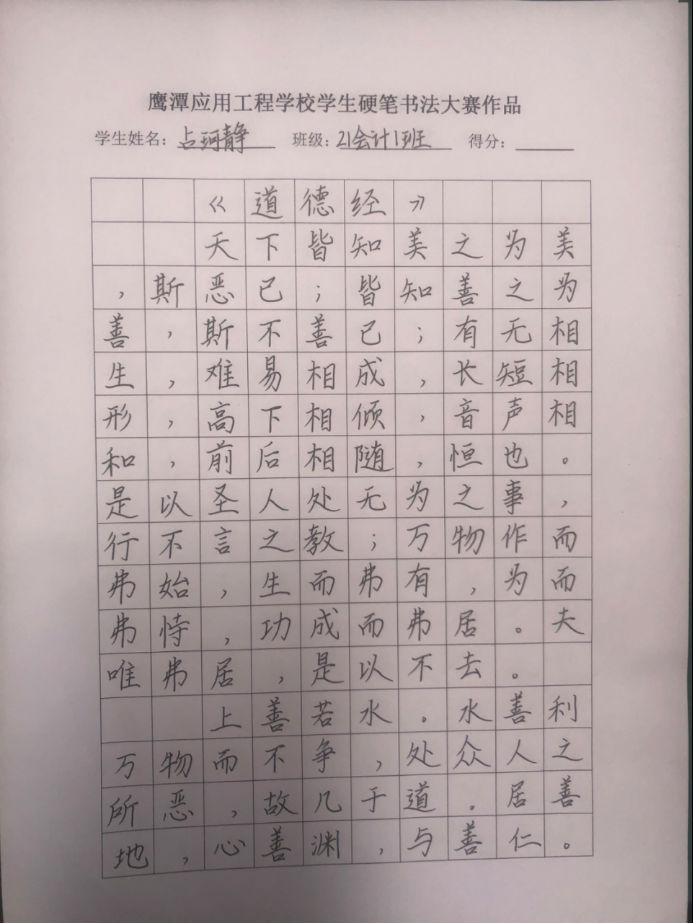 鹰潭应用工程学校学生硬笔书法大赛作品
学生姓名：占珂静 班级：21会计1班 得分：
《道德经》
天下皆知美之为美
，斯恶已；皆知善之为
善，斯不善已；有无相
生，难易相成，长短相
形，高下相倾，音声相
和，前后相随，恒也。
是以圣人处无为之事，
行不言之教；万物作而
弗始，生而弗有，为而
弗恃，功成而弗居。夫
唯弗居，是以不去。
上善若水。水善利
万物而不争，处众人之
所恶，故几于道。居善
地，心善渊，与善仁。